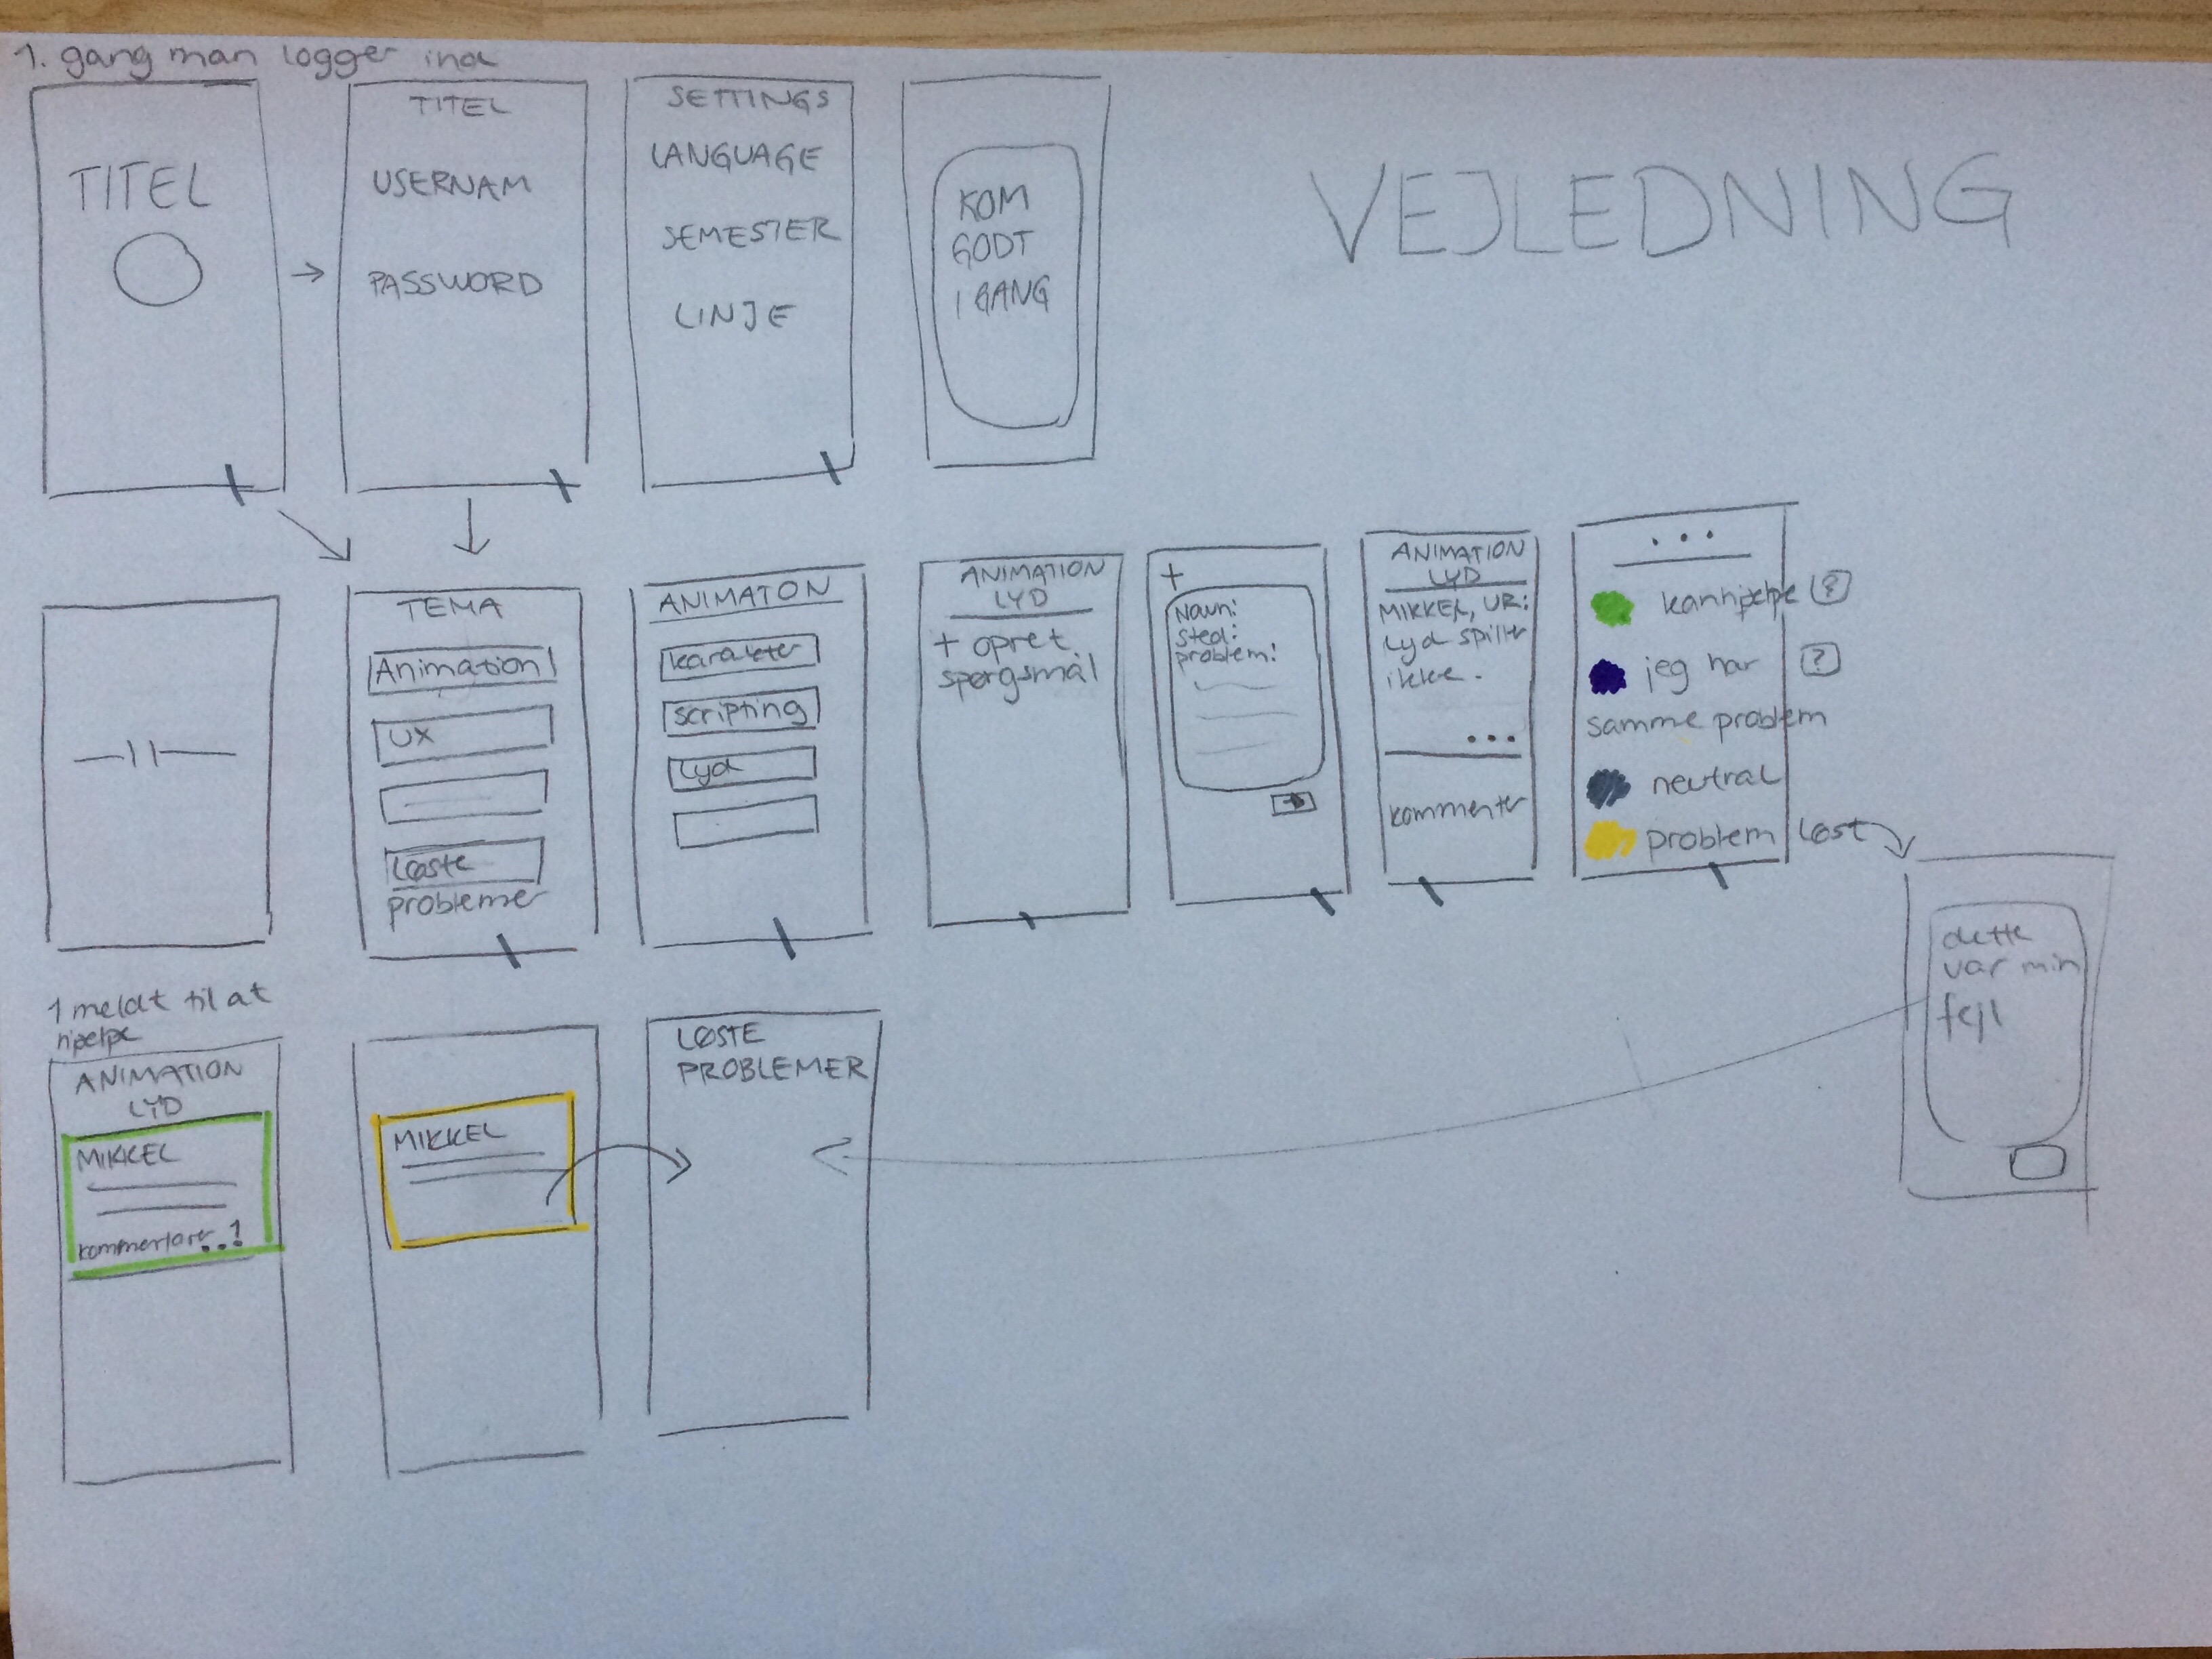 1. gang man logger ind
TITEL
TITEL
USERNAM
PASSWORD
SETTINGS
LANGUAGE
SEMESTER
LINJE
KOM
GODT
I GANG
VEJLEDNING
TEMA
Animation
UX
Løste
problemer
ANIMATON
karakter
scripting
Lyd
ANIMATION
LYD
+ opret
spørgsmål
+
Navn:
sted:
problem:
ANIMATION
LYD
MIKKEL, UR:
Lyd spiller
ikke.
...
kommenter
...
kan hjælpe ?
jeg har ?
samme problem
neutral
problem løst
dette
var min
fejl
1 meldt til at
hjælpe
ANIMATION
LYD
MIKKEL
kommentarer..1
MIKKEL
LØSTE
PROBLEMER